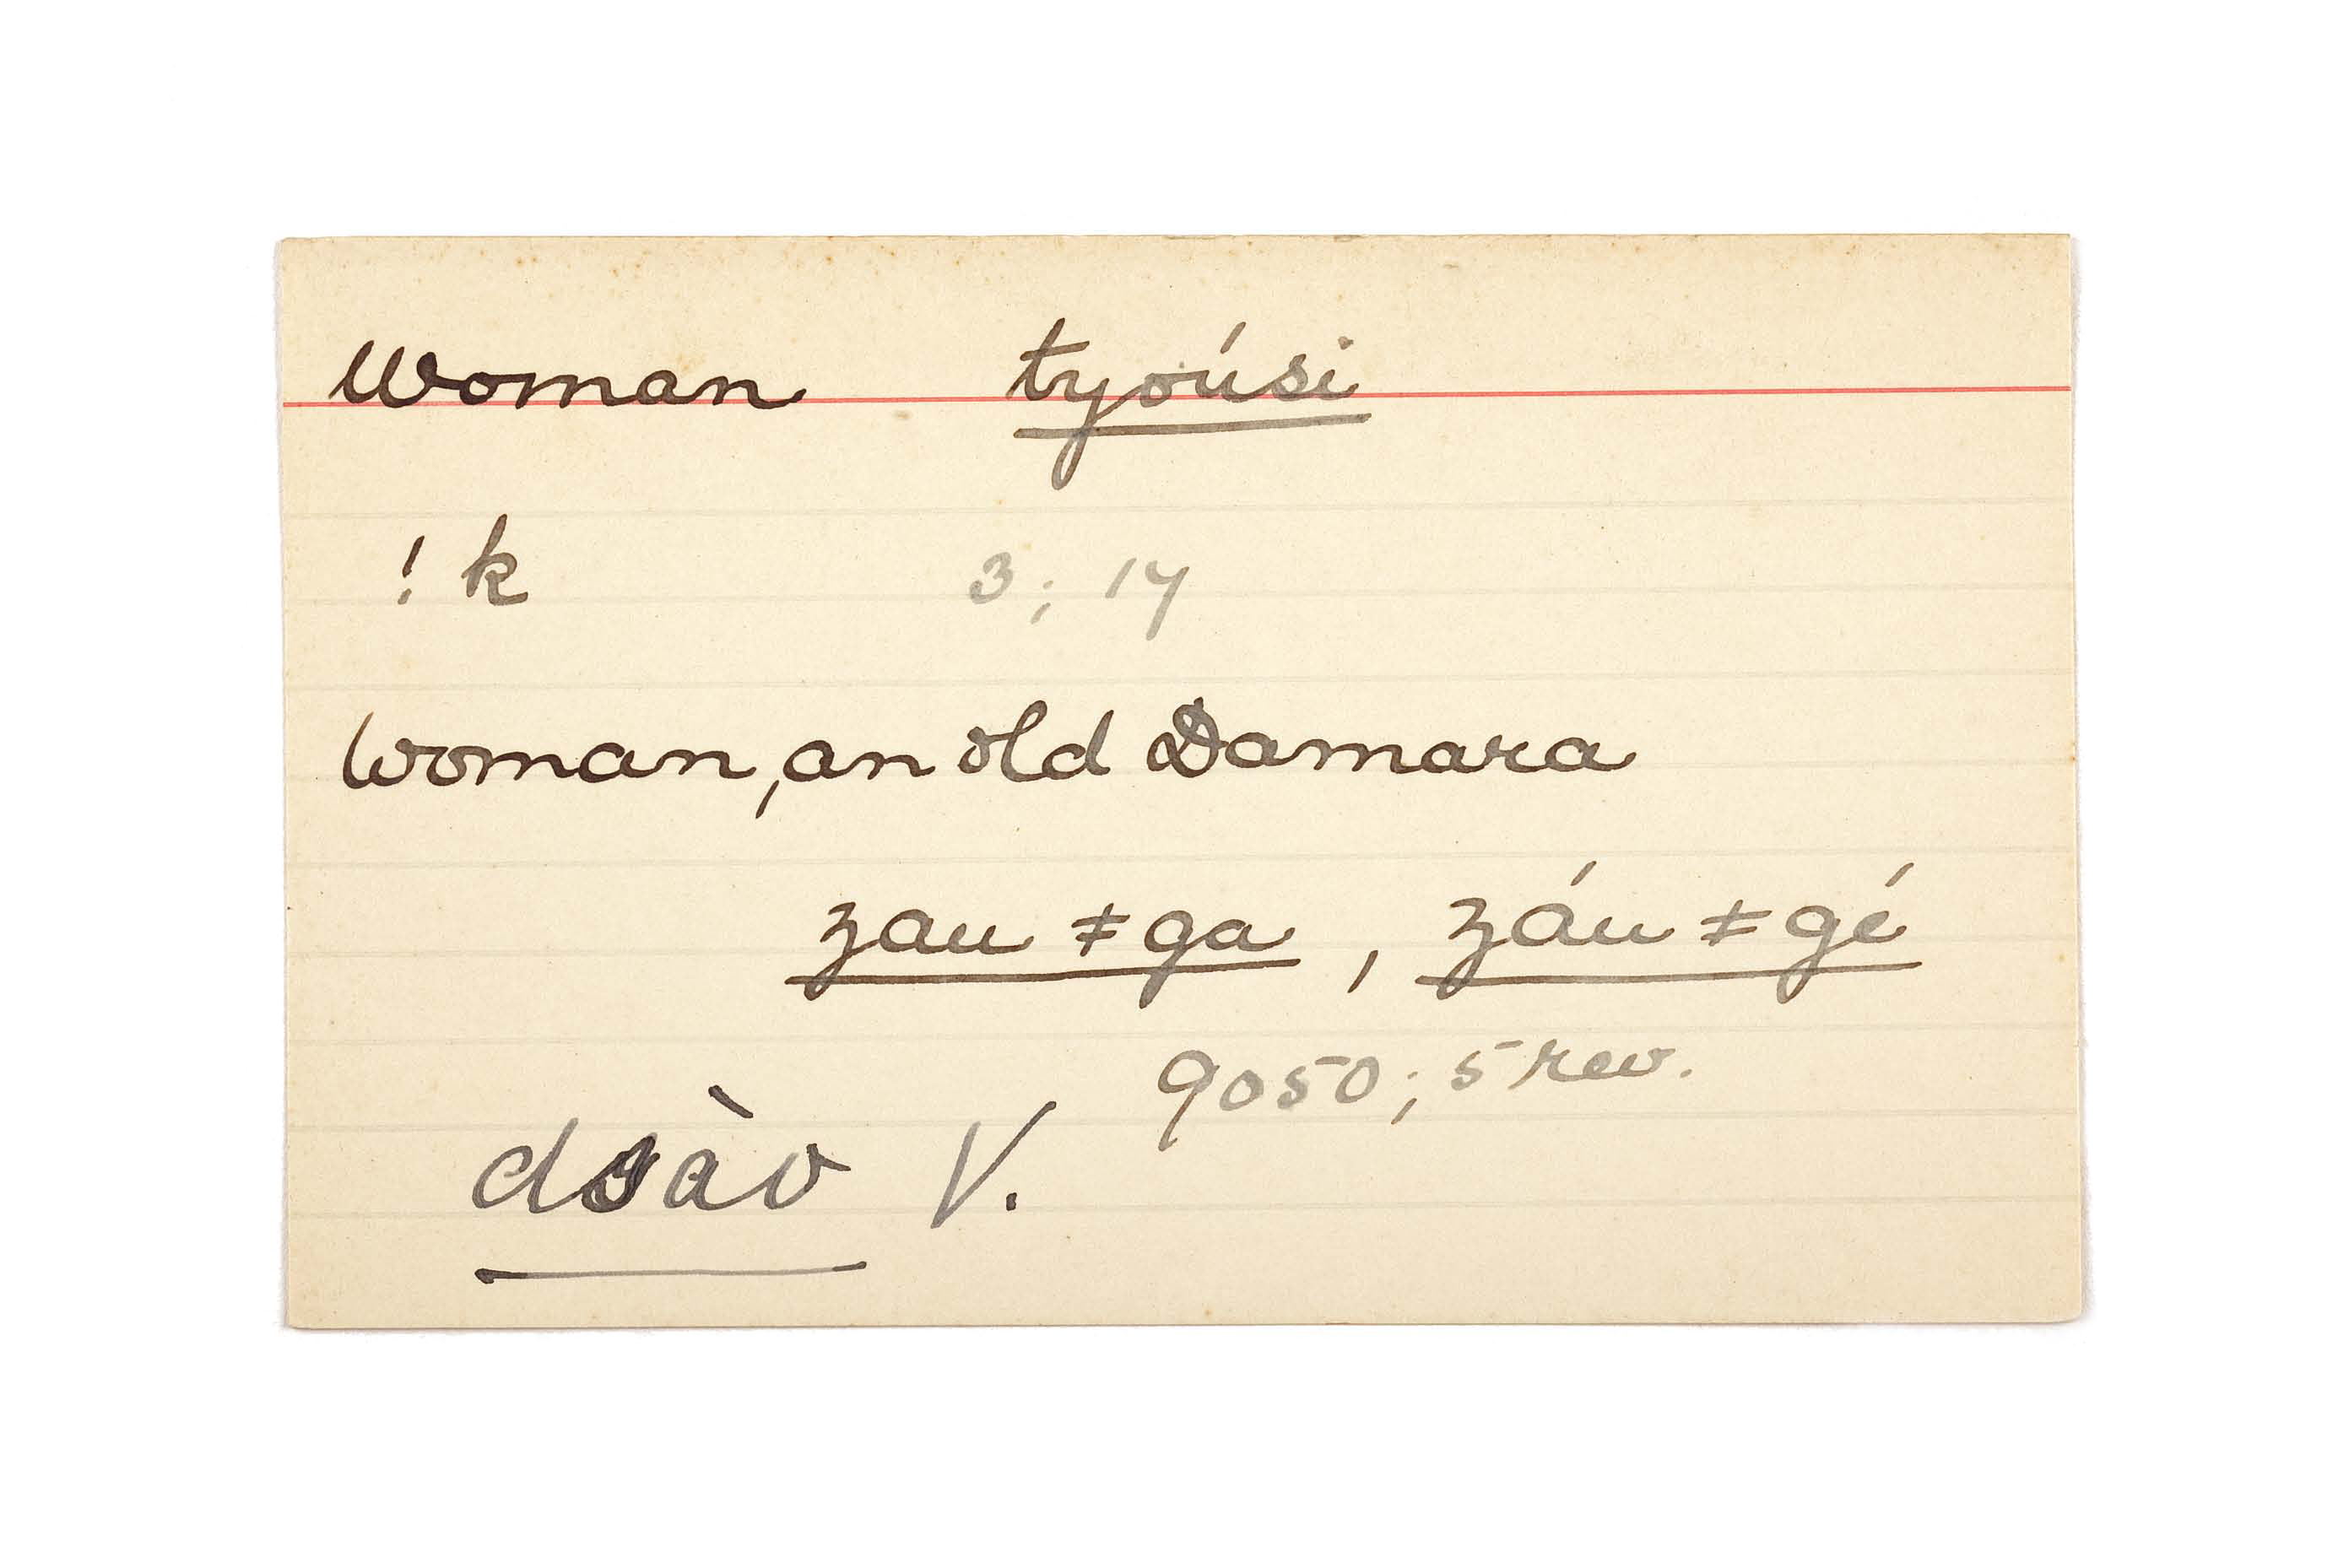 Woman tyoúsi
! k 3; 17
Woman, an old Damara
zau ǂ ga, záu ǂ gé
9050; 5 rev.
dsàʋ V.